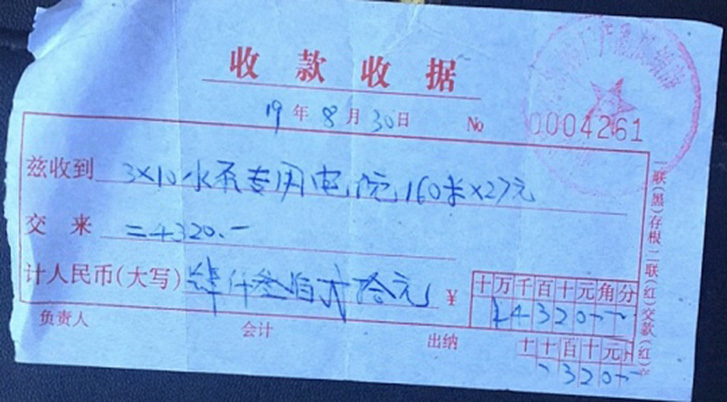 收款收据
19年8月30日 No 0004261
兹收到 3×10水泵专用电缆160米×27元
交来 =4320.—
计人民币(大写) 肆仟叁佰贰拾元 ¥
十万千百十元角分
4320——
负责人 会计 出纳
十千百十元
320—
一联(黑)存根 二联(红)交款(红)